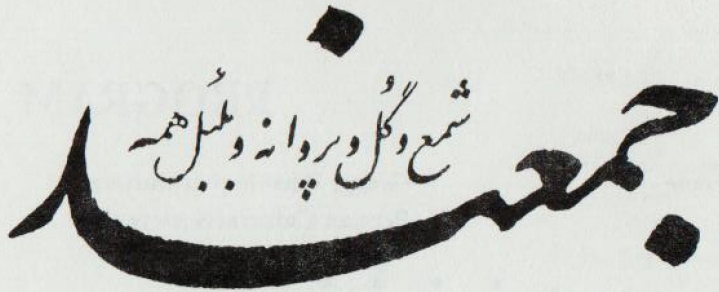 شمع و گُل و پروانه و بُلبُل همه
جمعند